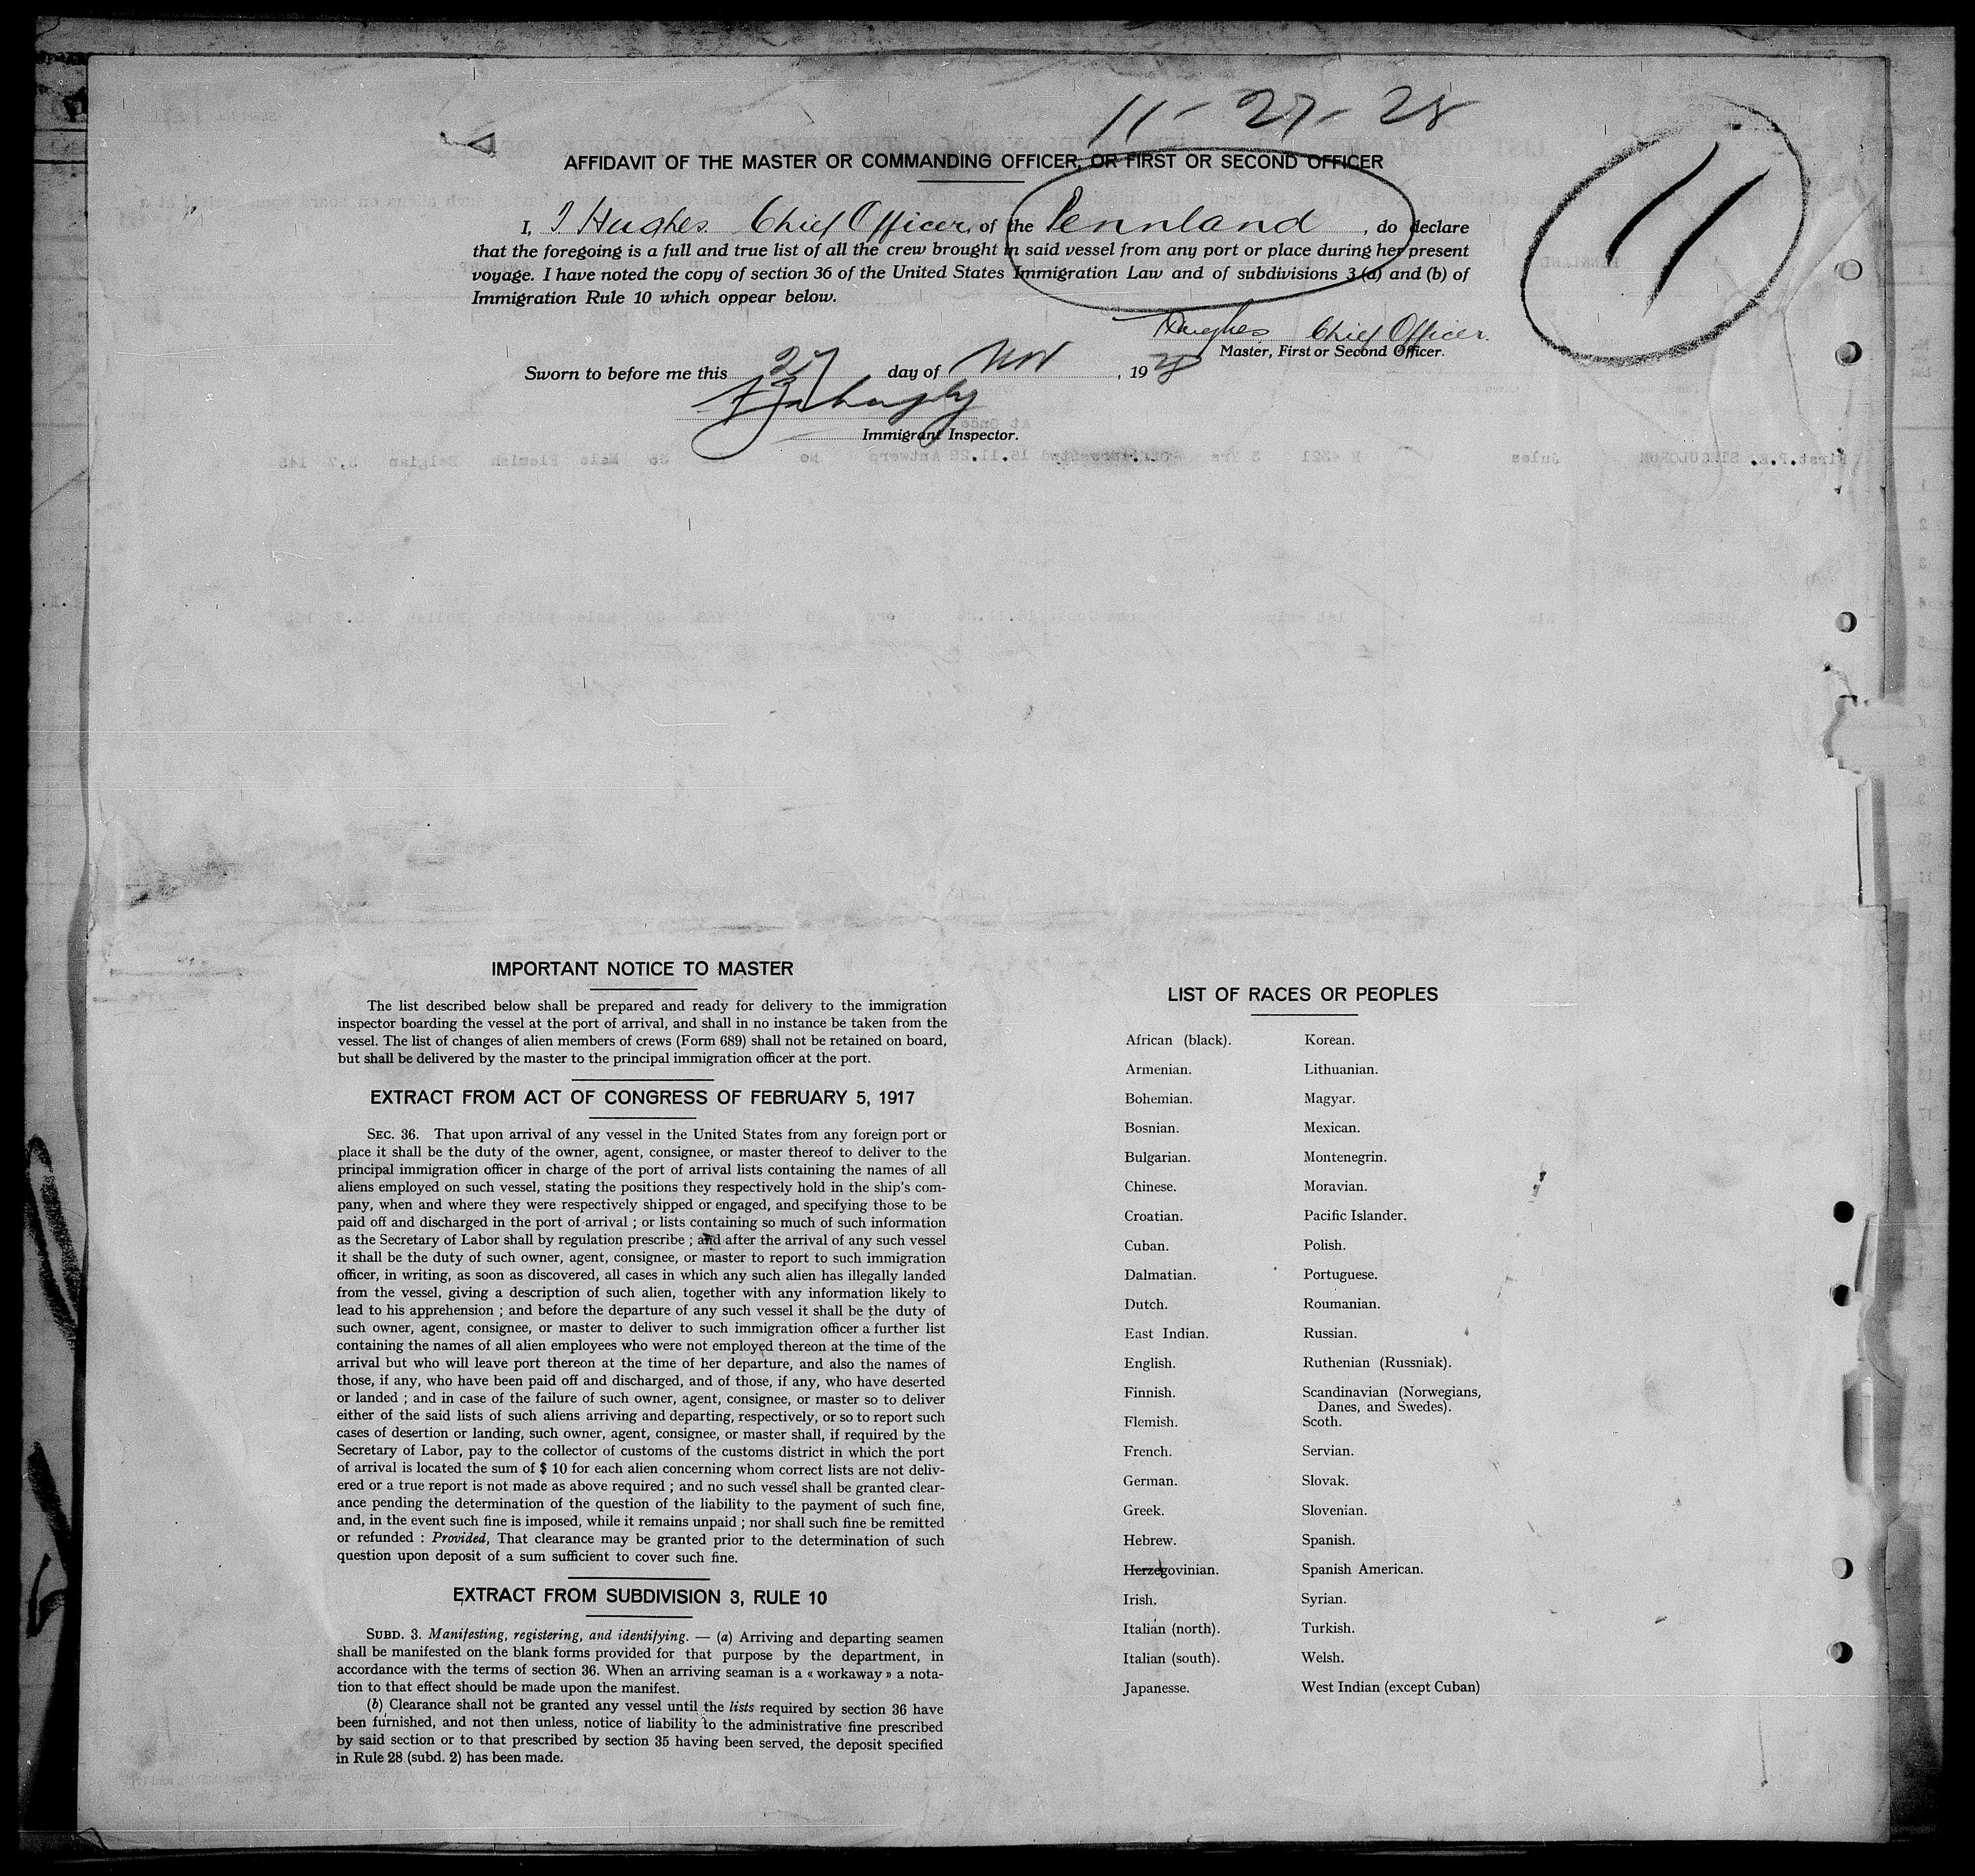 11-27-28
11
AFFIDAVIT OF THE MASTER OR COMMANDING OFFICER, OR FIRST OR SECOND OFFICER
I, J Hughes Chief Officer, of the Pennland, do declare
that the foregoing is a full and true list of all the crew brought in said vessel from any port or place during her present
voyage. I have noted the copy of section 36 of the United States Immigration Law and of subdivisions 3 (a) and (b) of
Immigration Rule 10 which oppear below.
Hughes Chief Officer.
Master, First or Second Officer.
Sworn to before me this 27 day of Nov, 1928
Immigrant Inspector.
IMPORTANT NOTICE TO MASTER
The list described below shall be prepared and ready for delivery to the immigration
inspector boarding the vessel at the port of arrival, and shall in no instance be taken from the
vessel. The list of changes of alien members of crews (Form 689) shall not be retained on board,
but shall be delivered by the master to the principal immigration officer at the port.
EXTRACT FROM ACT OF CONGRESS OF FEBRUARY 5, 1917
SEC. 36. That upon arrival of any vessel in the United States from any foreign port or
place it shall be the duty of the owner, agent, consignee, or master thereof to deliver to the
principal immigration officer in charge of the port of arrival lists containing the names of all
aliens employed on such vessel, stating the positions they respectively hold in the ship's com-
pany, when and where they were respectively shipped or engaged, and specifying those to be
paid off and discharged in the port of arrival ; or lists containing so much of such information
as the Secretary of Labor shall by regulation prescribe ; and after the arrival of any such vessel
it shall be the duty of such owner, agent, consignee, or master to report to such immigration
officer, in writing, as soon as discovered, all cases in which any such alien has illegally landed
from the vessel, giving a description of such alien, together with any information likely to
lead to his apprehension ; and before the departure of any such vessel it shall be the duty of
such owner, agent, consignee, or master to deliver to such immigration officer a further list
containing the names of all alien employees who were not employed thereon at the time of the
arrival but who will leave port thereon at the time of her departure, and also the names of
those, if any, who have been paid off and discharged, and of those, if any, who have deserted
or landed ; and in case of the failure of such owner, agent, consignee, or master so to deliver
either of the said lists of such aliens arriving and departing, respectively, or so to report such
cases of desertion or landing, such owner, agent, consignee, or master shall, if required by the
Secretary of Labor, pay to the collector of customs of the customs district in which the port
of arrival is located the sum of $ 10 for each alien concerning whom correct lists are not deliv-
ered or a true report is not made as above required ; and no such vessel shall be granted clear-
ance pending the determination of the question of the liability to the payment of such fine,
and, in the event such fine is imposed, while it remains unpaid ; nor shall such fine be remitted
or refunded : Provided, That clearance may be granted prior to the determination of such
question upon deposit of a sum sufficient to cover such fine.
EXTRACT FROM SUBDIVISION 3, RULE 10
SUBD. 3. Manifesting, registering, and identifying. — (a) Arriving and departing seamen
shall be manifested on the blank forms provided for that purpose by the department, in
accordance with the terms of section 36. When an arriving seaman is a « workaway » a nota-
tion to that effect should be made upon the manifest.
(b) Clearance shall not be granted any vessel until the lists required by section 36 have
been furnished, and not then unless, notice of liability to the administrative fine prescribed
by said section or to that prescribed by section 35 having been served, the deposit specified
in Rule 28 (subd. 2) has been made.
LIST OF RACES OR PEOPLES
African (black).
Armenian.
Bohemian.
Bosnian.
Bulgarian.
Chinese.
Croatian.
Cuban.
Dalmatian.
Dutch.
East Indian.
English.
Finnish.
Flemish.
French.
German.
Greek.
Hebrew.
Herzegovinian.
Irish.
Italian (north).
Italian (south).
Japanesse.
Korean.
Lithuanian.
Magyar.
Mexican.
Montenegrin.
Moravian.
Pacific Islander.
Polish.
Portuguese.
Roumanian.
Russian.
Ruthenian (Russniak).
Scandinavian (Norwegians,
Danes, and Swedes).
Scoth.
Servian.
Slovak.
Slovenian.
Spanish.
Spanish American.
Syrian.
Turkish.
Welsh.
West Indian (except Cuban)